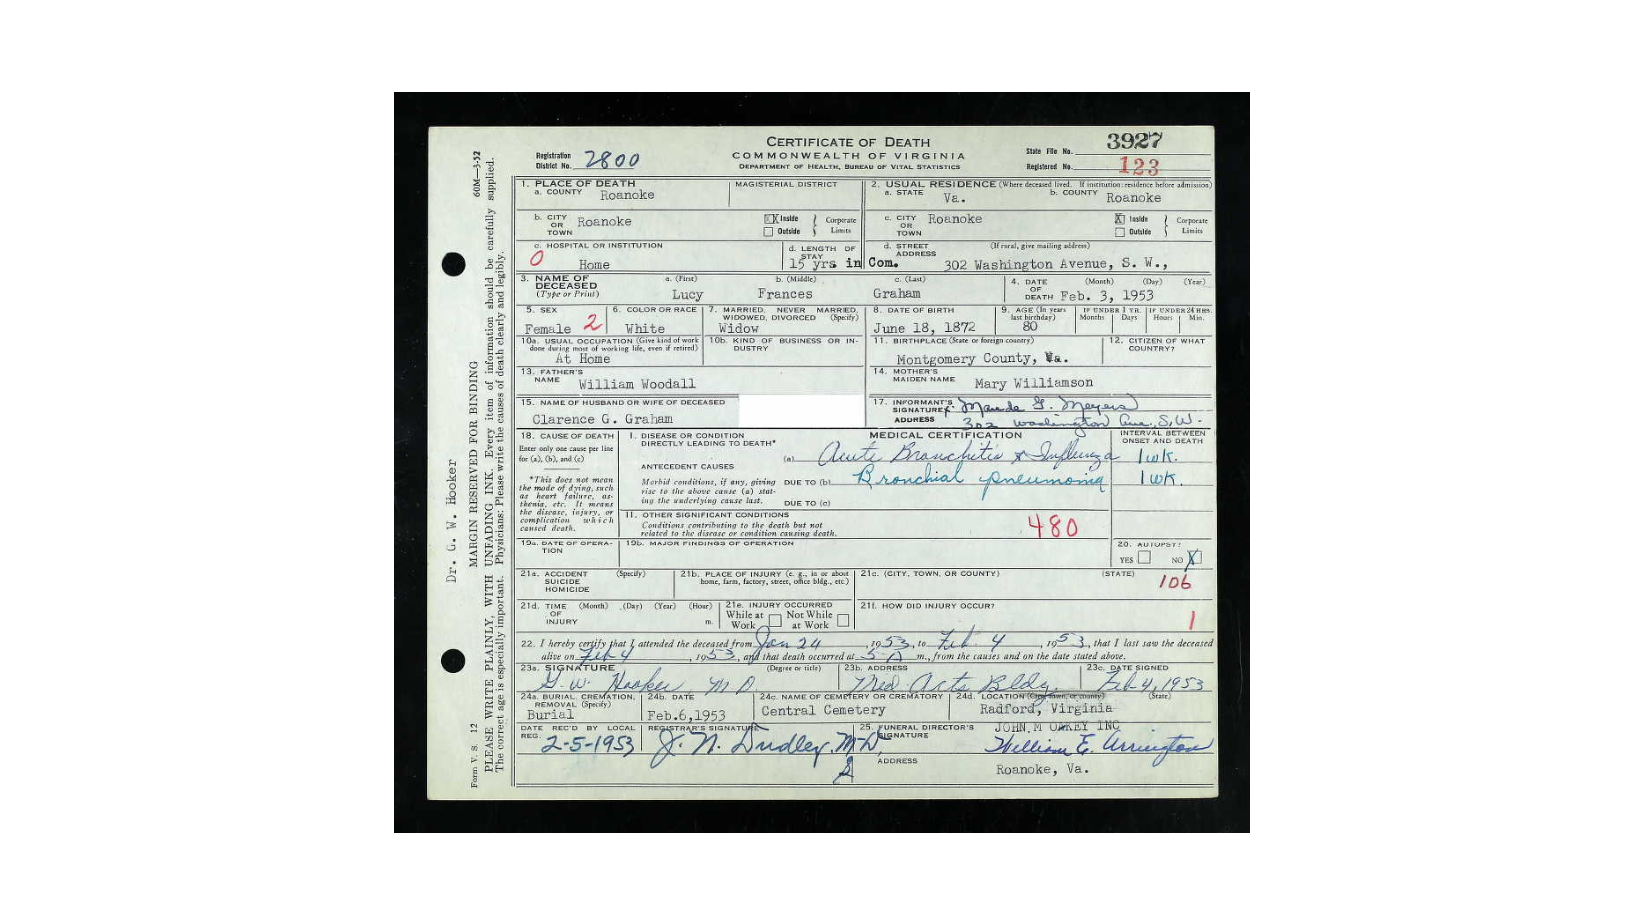 CERTIFICATE OF DEATH
COMMONWEALTH OF VIRGINIA
DEPARTMENT OF HEALTH, BUREAU OF VITAL STATISTICS
Registration District No. 2800
State File No. 3927
Registered No. 123
1. PLACE OF DEATH
a. COUNTY Roanoke
MAGISTERIAL DISTRICT
2. USUAL RESIDENCE (Where deceased lived. If institution: residence before admission)
a. STATE Va.
b. COUNTY Roanoke
b. CITY OR TOWN Roanoke
XX Inside
Outside
Corporate Limits
c. CITY OR TOWN Roanoke
X Inside
Outside
Corporate Limits
c. HOSPITAL OR INSTITUTION
0 Home
d. LENGTH OF STAY
15 yrs in Com.
d. STREET ADDRESS (If rural, give mailing address)
302 Washington Avenue, S. W.,
3. NAME OF DECEASED (Type or Print)
a. (First) Lucy
b. (Middle) Frances
c. (Last) Graham
4. DATE OF DEATH (Month) (Day) (Year)
Feb. 3, 1953
5. SEX
Female 2
6. COLOR OR RACE
White
7. MARRIED, NEVER MARRIED, WIDOWED, DIVORCED (Specify)
Widow
8. DATE OF BIRTH
June 18, 1872
9. AGE (In years last birthday)
80
IF UNDER 1 YR. Months Days
IF UNDER 24 HRS. Hours Min.
10a. USUAL OCCUPATION (Give kind of work done during most of working life, even if retired)
At Home
10b. KIND OF BUSINESS OR INDUSTRY
11. BIRTHPLACE (State or foreign country)
Montgomery County, Va.
12. CITIZEN OF WHAT COUNTRY?
13. FATHER'S NAME William Woodall
14. MOTHER'S MAIDEN NAME Mary Williamson
15. NAME OF HUSBAND OR WIFE OF DECEASED
Clarence G. Graham
17. INFORMANT'S SIGNATURE x Maude G. Meyers
ADDRESS 302 Washington Ave., S.W.
18. CAUSE OF DEATH
Enter only one cause per line for (a), (b), and (c)
*This does not mean the mode of dying, such as heart failure, asthenia, etc. It means the disease, injury, or complication which caused death.
MEDICAL CERTIFICATION
INTERVAL BETWEEN ONSET AND DEATH
I. DISEASE OR CONDITION DIRECTLY LEADING TO DEATH*
(a) Acute Bronchitis & Influenza 1 wk.
ANTECEDENT CAUSES
Morbid conditions, if any, giving rise to the above cause (a) stating the underlying cause last.
DUE TO (b) Bronchial pneumonia 1 wk.
DUE TO (c)
11. OTHER SIGNIFICANT CONDITIONS
Conditions contributing to the death but not related to the disease or condition causing death.
480
19a. DATE OF OPERATION
19b. MAJOR FINDINGS OF OPERATION
20. AUTOPSY?
YES NO X
21a. ACCIDENT SUICIDE HOMICIDE (Specify)
21b. PLACE OF INJURY (e. g., in or about home, farm, factory, street, office bldg., etc.)
21c. (CITY, TOWN, OR COUNTY) (STATE)
106
21d. TIME OF INJURY (Month) (Day) (Year) (Hour) m.
21e. INJURY OCCURRED
While at Work
Not While at Work
21f. HOW DID INJURY OCCUR?
1
22. I hereby certify that I attended the deceased from Jan 24, 1953, to Feb. 4, 1953, that I last saw the deceased
alive on Feb 4, 1953, and that death occurred at 5 A m., from the causes and on the date stated above.
23a. SIGNATURE (Degree or title)
G. W. Hooker M D
23b. ADDRESS
Med. Arts Bldg.
23c. DATE SIGNED
Feb 4, 1953
24a. BURIAL, CREMATION, REMOVAL (Specify)
Burial
24b. DATE
Feb.6,1953
24c. NAME OF CEMETERY OR CREMATORY
Central Cemetery
24d. LOCATION (City, town, or county) (State)
Radford, Virginia
DATE REC'D BY LOCAL REG.
2-5-1953
REGISTRAR'S SIGNATURE
J. N. Dudley, M.D.
25. FUNERAL DIRECTOR'S SIGNATURE
JOHN M OAKEY INC
William E. Arrington
ADDRESS
Roanoke, Va.
Form V. S. 12
60M—3-52
Dr. G. W. Hooker
MARGIN RESERVED FOR BINDING
PLEASE WRITE PLAINLY, WITH UNFADING INK. Every item of information should be carefully supplied.
The correct age is especially important. Physicians: Please write the causes of death clearly and legibly.